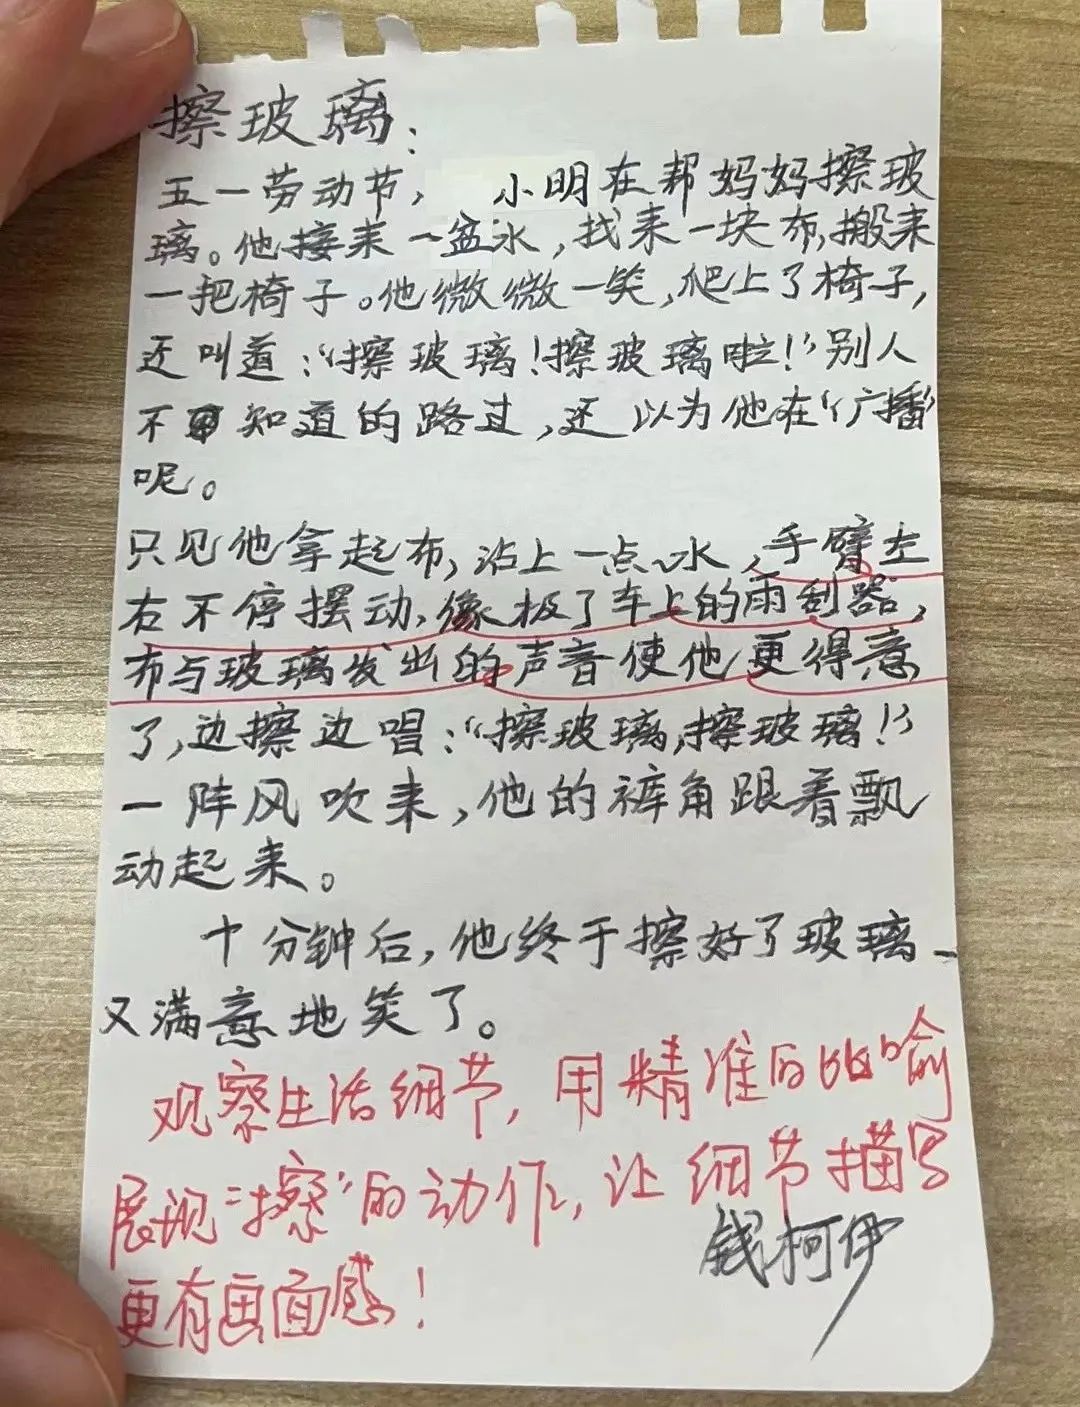 擦玻璃：
五一劳动节，小明在帮妈妈擦玻
璃。他接来一盆水，找来一块布，搬来
一把椅子。他微微一笑，爬上了椅子，
还叫道：“擦玻璃！擦玻璃啦！”别人
不知道的路过，还以为他在“广播”
呢。
只见他拿起布，沾上一点水，手臂左
右不停摆动，像极了车上的雨刮器，
布与玻璃发出的声音使他更得意
了，边擦边唱：“擦玻璃，擦玻璃！”
一阵风吹来，他的裤角跟着飘
动起来。
十分钟后，他终于擦好了玻璃，
又满意地笑了。
观察生活细节，用精准的比喻
展现“擦”的动作，让细节描写
钱柯伊
更有画面感！